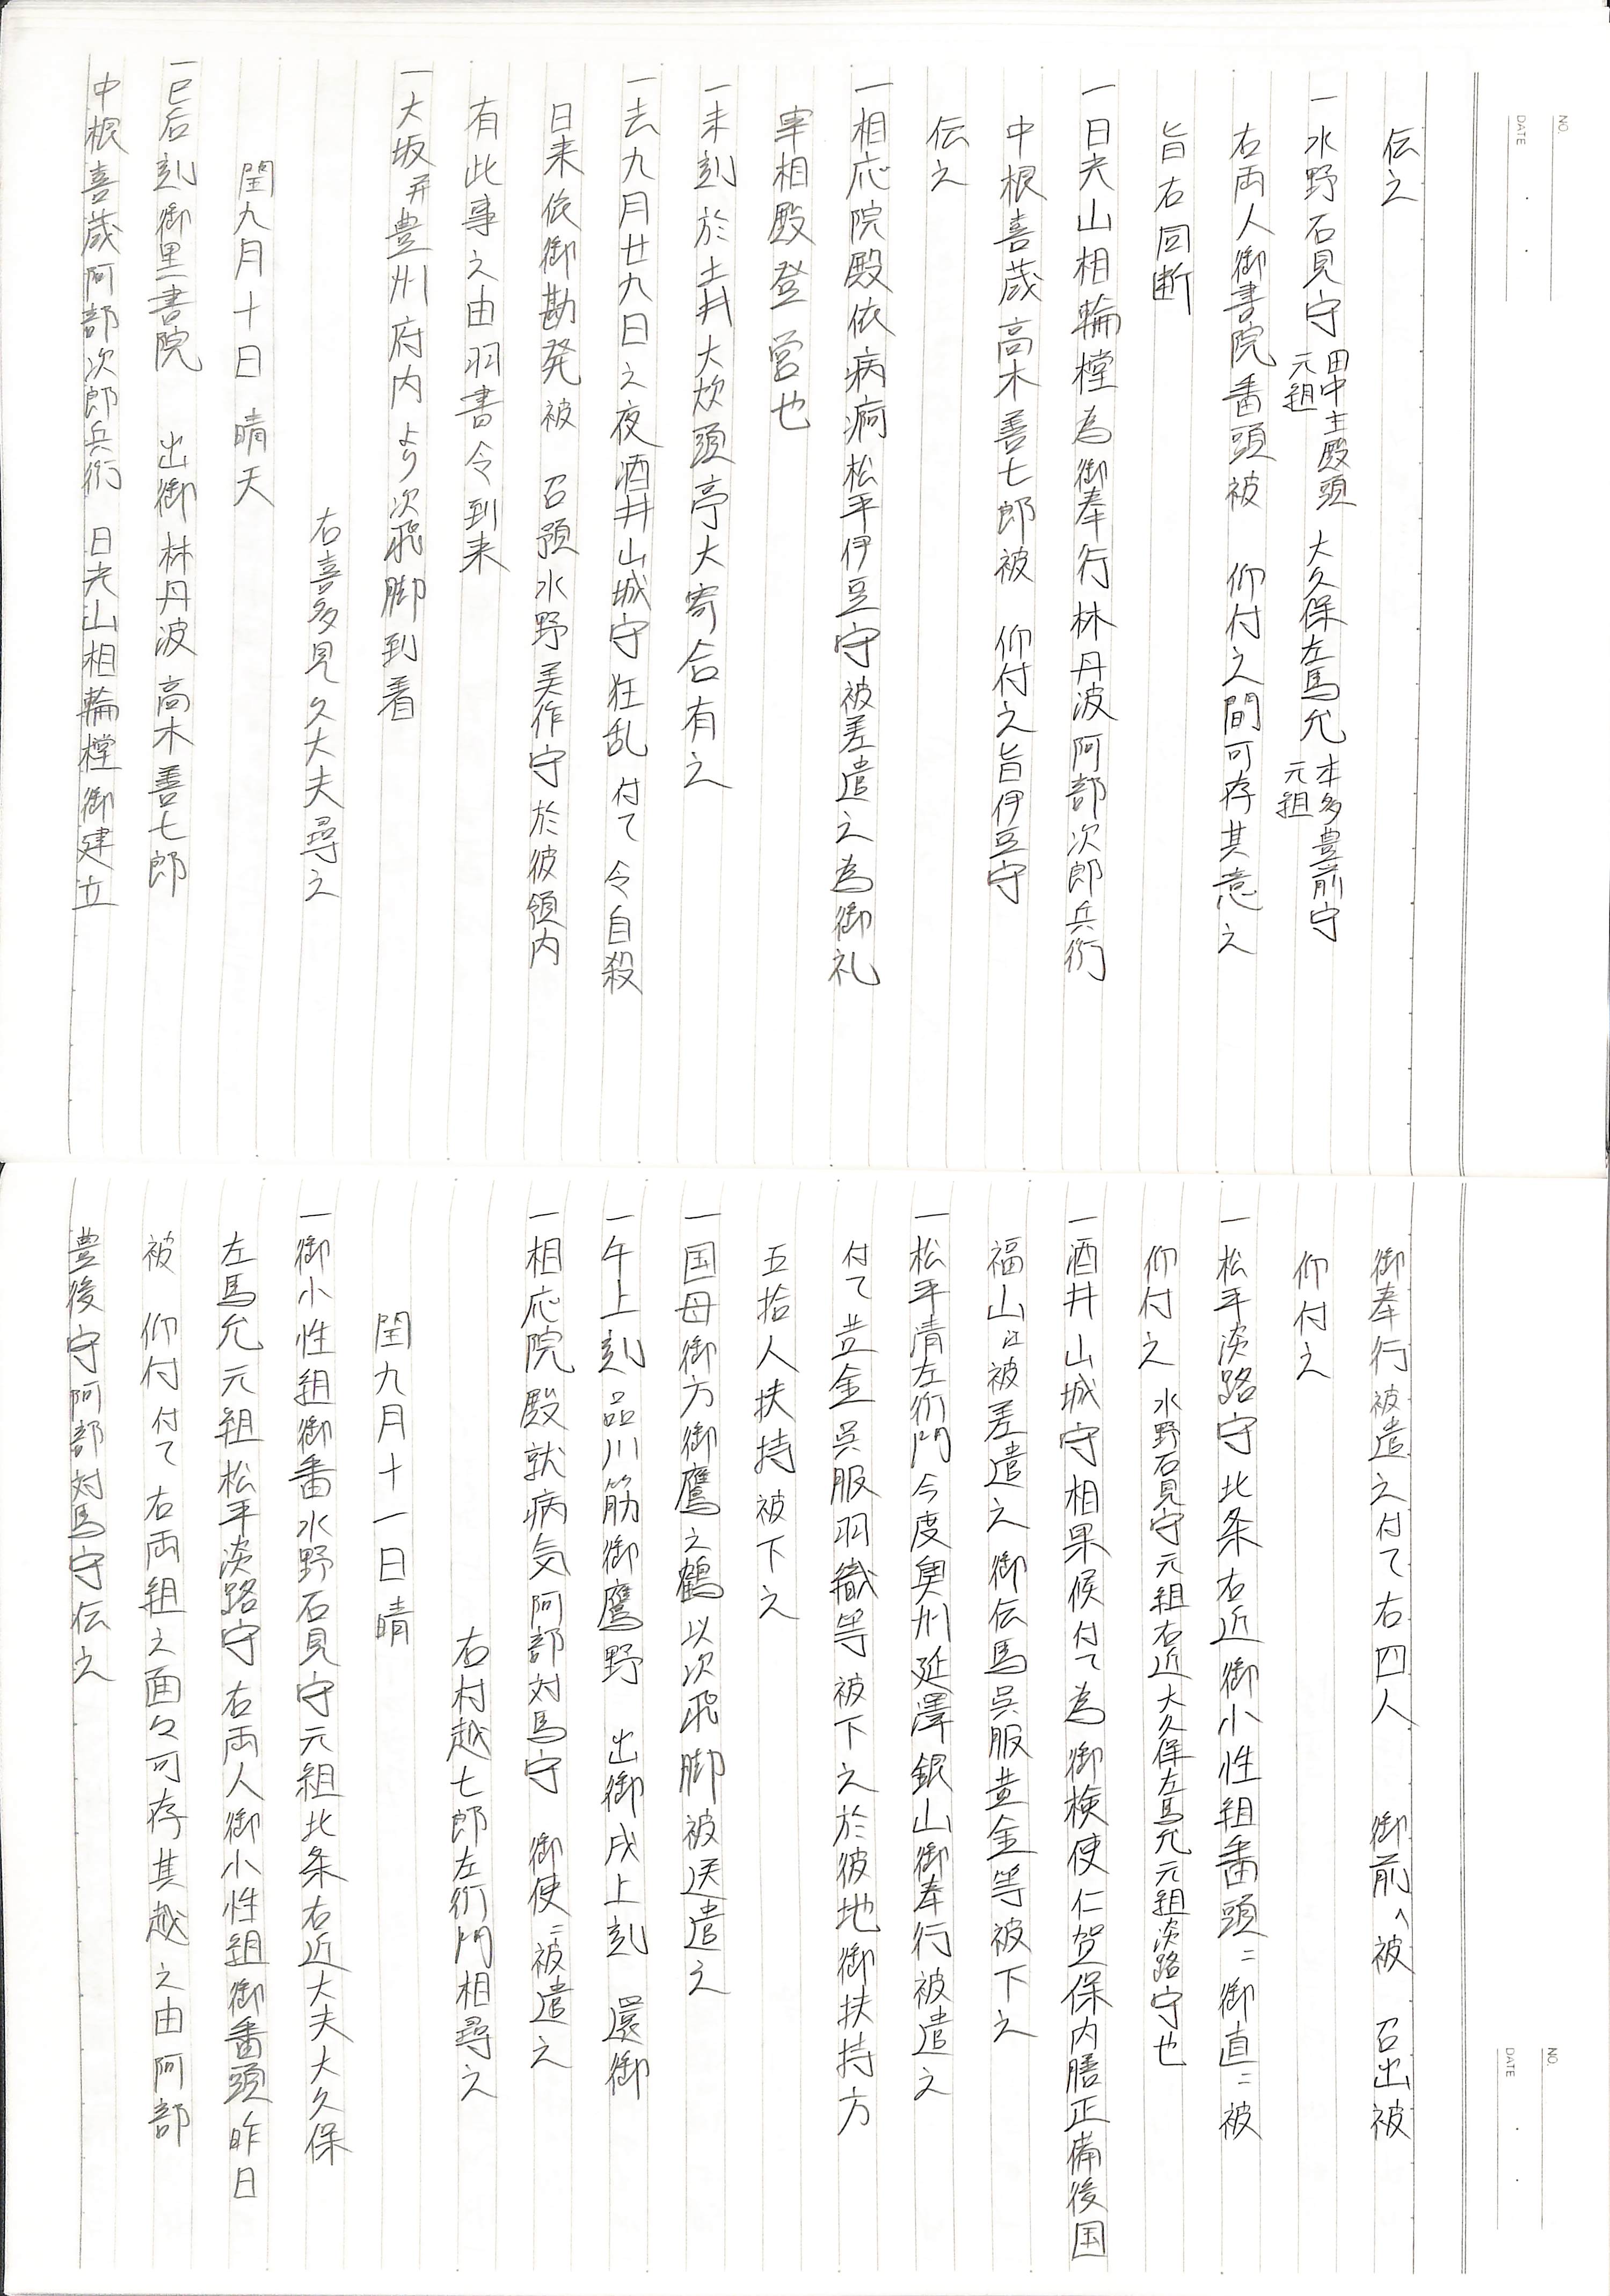 NO.
DATE
伝之
一水野石見守 田中主殿頭元組 大久保左馬允 本多豊前守元組
右両人御書院番頭被 仰付之間可存其意之
旨右同断
一日光山相輪橖為御奉行林丹波阿部次郎兵衛
中根喜蔵高木善七郎被 仰付之旨伊豆守
伝之
一相応院殿依病痾松平伊豆守被差遣之為御礼
宰相殿登営也
一未刻於土井大炊頭亭大寄合有之
一去九月廿九日之夜酒井山城守狂乱付て令自殺
日来依御勘発被 召預水野美作守於彼領内
有此事之由羽書令到来
一大坂并豊州府内より次飛脚到着
右喜多見久大夫尋之
閏九月十日 晴天
一巳后刻御黒書院 出御林丹波高木善七郎
中根喜蔵阿部次郎兵衛 日光山相輪橖御建立
NO.
DATE
御奉行被遣之付て右四人 御前へ被 召出被
仰付之
一松平淡路守北条右近御小性組番頭ニ御直ニ被
仰付之 水野石見守元組右近大久保左馬允元組淡路守也
一酒井山城守相果候付て為御検使仁賀保内膳正備後国
福山江被差遣之御伝馬呉服黄金等被下之
一松平清左衛門今度奥州延澤銀山御奉行被遣之
付て黄金呉服羽織等被下之於彼地御扶持方
五拾人扶持被下之
一国母御方御鷹之鶴以次飛脚被送遣之
一午上刻品川筋御鷹野 出御戌上刻 還御
一相応院殿就病気阿部対馬守 御使ニ被遣之
右村越七郎左衛門相尋之
閏九月十一日晴
一御小性組御番水野石見守元組北条右近大夫大久保
左馬允元組松平淡路守右両人御小性組御番頭昨日
被 仰付付て右両組之面々可存其越之由阿部
豊後守阿部対馬守伝之